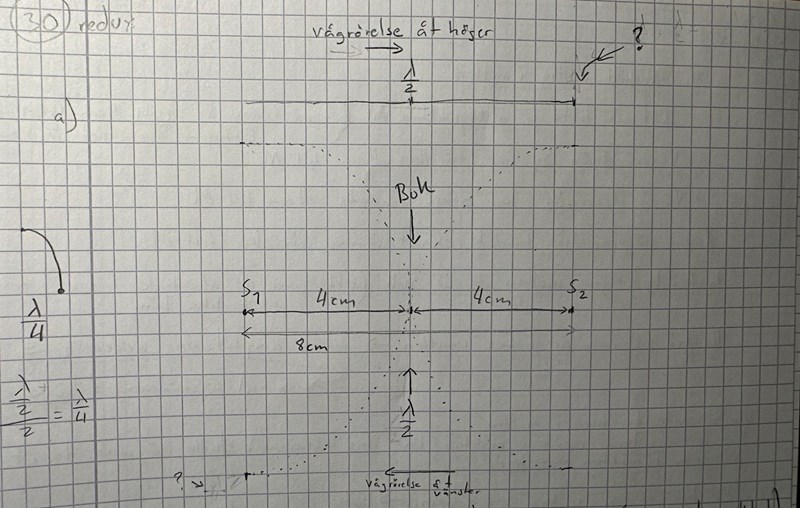 30 redux
vågrörelse åt höger
?
λ/2
a)
Buk
S1 4cm 4cm S2
8cm
λ/4
λ/2
λ/2/2 = λ/4
?
vågrörelse åt vänster